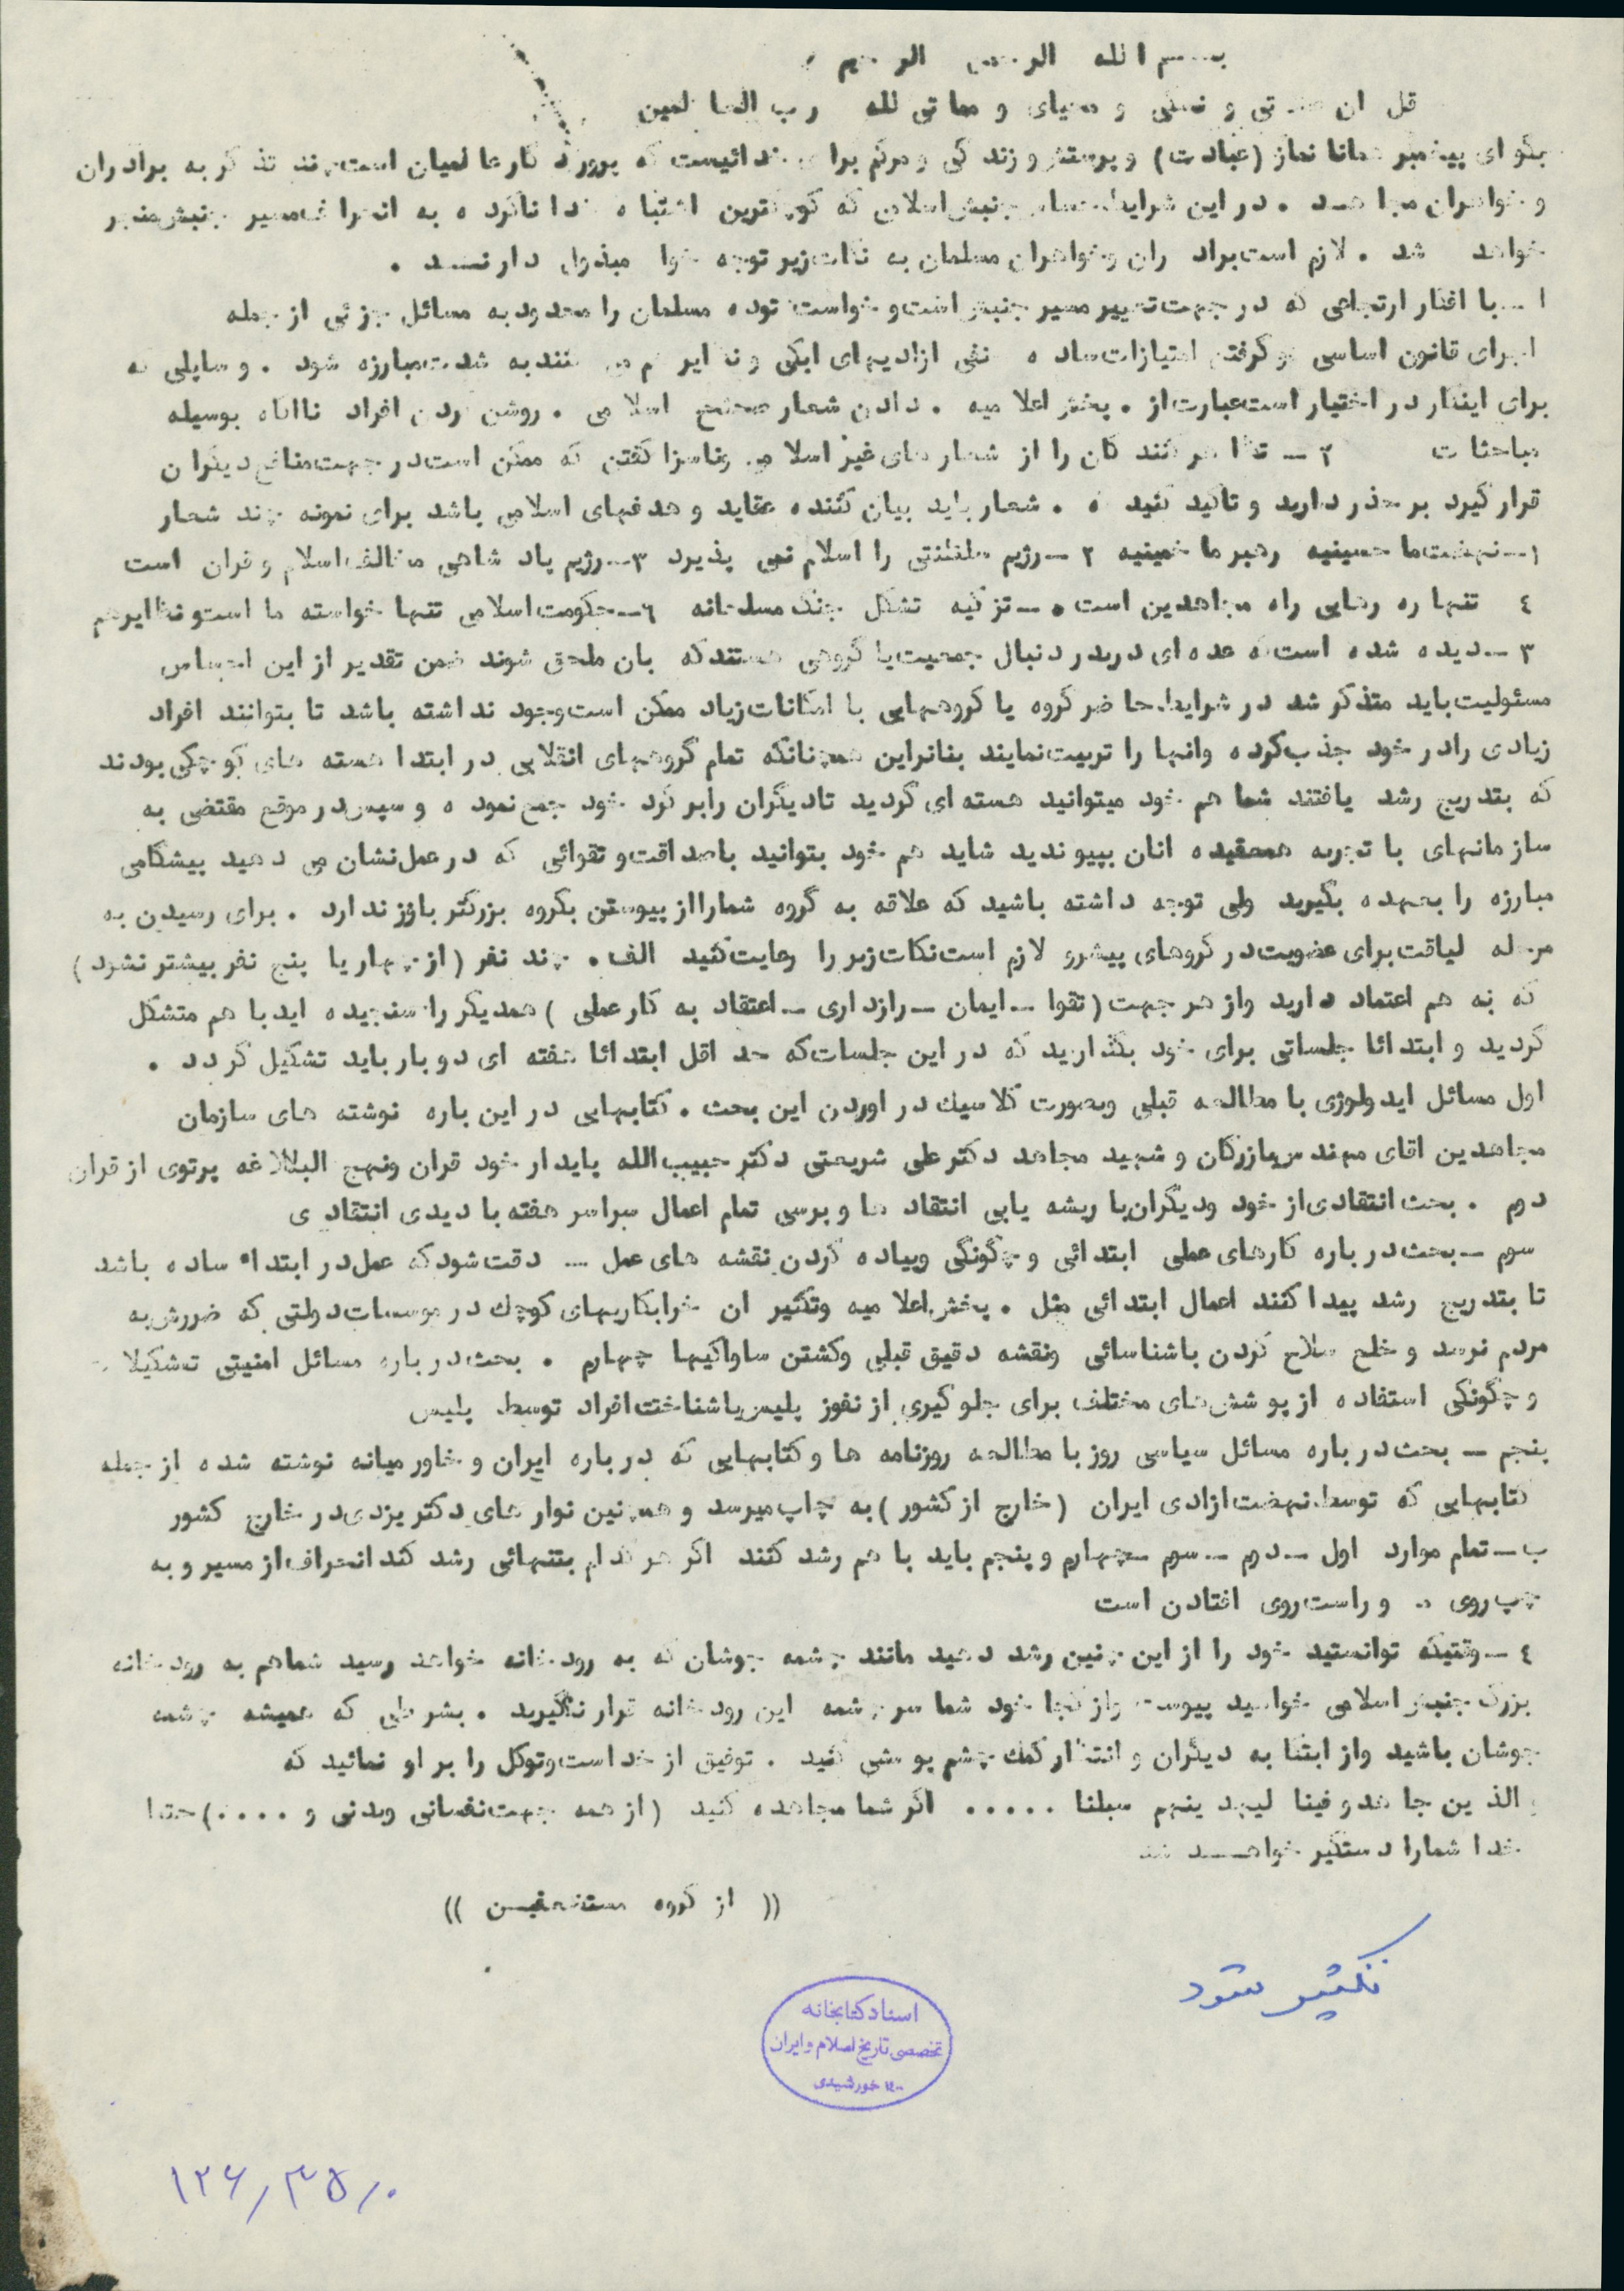 بسم الله الرحمن الرحیم
قل ان صلاتی و نسکی و محیای و مماتی لله رب العالمین
بگو ای پیغمبر همانا نماز (عبادت) و پرستش و زندگی و مرگم برای خدائیست که پروردگار عالمیان است چند تذکر به برادران
و خواهران مجاهد . در این شرایط حساس جنبش اسلامی که کوچکترین اشتباه خدا ناکرده به انحراف مسیر جنبش منجر
خواهد شد . لازم است برادران و خواهران مسلمان به نکات زیر توجه خوا مبذول دارنـد .
۱ ـ با افکار ارتجاعی که در جهت تغییر مسیر جنبش است و خواست توده مسلمان را محدود به مسائل جزئی از جمله
اجرای قانون اساسی و گرفتن امتیازات ساده نفی ازادیهای ابکی و نظایر هم می کنند به شدت مبارزه شود . وسایلی که
برای اینکار در اختیار است عبارت از . پخش اعلامیه . دادن شعار صحیح اسلامی . روشن کردن افراد نااگاه بوسیله
مباحثات ۲ ـ تظاهر کنندگان را از شعارهای غیر اسلامی و ناسزا گفتن که ممکن است در جهت منافع دیگران
قرار گیرد بر حذر دارید و تاکید کنید که . شعار باید بیان کننده عقاید و هدفهای اسلامی باشد برای نمونه چند شعار
۱ـ نهضت ما حسینیه رهبر ما خمینیه ۲ ـ رژیم سلطنتی را اسلام نمی پذیرد ۳ـ رژیم پاد شاهی مخالف اسلام و قران است
٤ تنها ره رهایی راه مجاهدین است ۰ ـ تزکیه تشکل جنگ مسلحانه ٦ـ حکومت اسلامی تنها خواسته ما است و نظایرهم
۳ ـ دیده شده است که عده ای دربدر دنبال جمعیت یا گروهی هستند که بان ملحق شوند ضمن تقدیر از این احساس
مسئولیت باید متذکر شد در شرایط حاضر گروه یا گروههایی با امکانات زیاد ممکن است وجود نداشته باشد تا بتوانند افراد
زیادی را در خود جذب کرده وانها را تربیت نمایند بنانراین همچنانکه تمام گروههای انقلابی در ابتدا هسته های کوچکی بودند
که بتدریج رشد یافتند شما هم خود میتوانید هسته ای گردید تادیگران رابر گرد خود جمع نموده و سپس در موقع مقتضی به
سازمانهای با تجربه همعقیده انان بپیوندید شاید هم خود بتوانید باصداقت و تقوائی که در عمل نشان می دهید پیشگامی
مبارزه را بعهده بگیرید ولی توجه داشته باشید که علاقه به گروه شمارا از پیوستن بگروه بزرگتر باز ندارد . برای رسیدن به
مرحله لیاقت برای عضویت در گروهای پیشرو لازم است نکات زیر را رعایت کنید الف . چند نفر (از چهار یا پنج نفر بیشتر نشود)
که به هم اعتماد دارید واز هر جهت (تقوا ـ ایمان ـ رازداری ـ اعتقاد به کار عملی ) همدیگر را سنجیده اید با هم متشکل
گردید و ابتدائا جلساتی برای خود بگذارید که در این جلسات که حد اقل ابتدائا هفته ای دو بار باید تشکیل گردد .
اول مسائل ایدولوژی با مطالعه قبلی وبصورت کلاسیک در اوردن این بحث . کتابهایی در این باره نوشته های سازمان
مجاهدین اقای مهندس بازرگان و شهید مجاهد دکتر علی شریعتی دکتر حبیب الله پایدار خود قران ونهج البلاغه پرتوی از قران
دوم . بحث انتقادی از خود ودیگران با ریشه یابی انتقاد ها و برسی تمام اعمال سراسر هفته با دیدی انتقادی
سوم ـ بحث در باره کارهای عملی ابتدائی و چگونگی وپیاده کردن نقشه های عمل ... دقت شود که عمل در ابتداء ساده باشد
تا بتدریج رشد پیدا کنند اعمال ابتدائی مثل . پخش اعلامیه وتکثیر ان خرابکاریهای کوچک در موسسات دولتی که ضررش به
مردم نرسد و خلع سلاح کردن باشناسائی ونقشه دقیق قبلی وکشتن ساواکیها چهارم . بحث در باره مسائل امنیتی تشکیلات
و چگونگی استفاده از پوشش های مختلف برای جلوگیری از نفوز پلیس یا شناختت افراد توسط پلیس
پنجم ـ بحث در باره مسائل سیاسی روز با مطالعه روزنامه ها و کتابهایی که در باره ایران و خاور میانه نوشته شده از جمله
کتابهایی که توسط نهضت ازادی ایران (خارج از کشور) به چاپ میرسد و همچنین نوار های دکتر یزدی در خارج کشور
ب ـ تمام موارد اول ـ دوم ـ سوم ـ چهارم و پنجم باید با هم رشد کنند اگر هر کدام بتنهائی رشد کند انحراف از مسیر و به
چپ روی و راست روی افتادن است
٤ ـ وقتیکه توانستید خود را از این چنین رشد دهید مانند چشمه جوشان که به رودخانه خواهد رسید شماهم به رودخانه
بزرگ جنبش اسلامی خواهید پیوست واز کجا خود شما سرچشمه این رودخانه قرار نگیرید . بشرطی که همیشه چشمه
جوشان باشید واز ابتکا به دیگران و انتظار کمک چشم پوشی کنید . توفیق از خداست وتوکل را بر او نمائید که
و الذین جاهدو فینا لیهدینهم سبلنا ..... اگر شما مجاهده کنید (از همه جهت نفسانی وبدنی و ....) حتما
خدا شمارا دستگیر خواهــد شد
(( از گروه مستضعفیـن ))
تکثیر شود
اسناد کتابخانه
تخصصی تاریخ اسلام و ایران
خورشیدی
۱۲۶/۳۵/۰